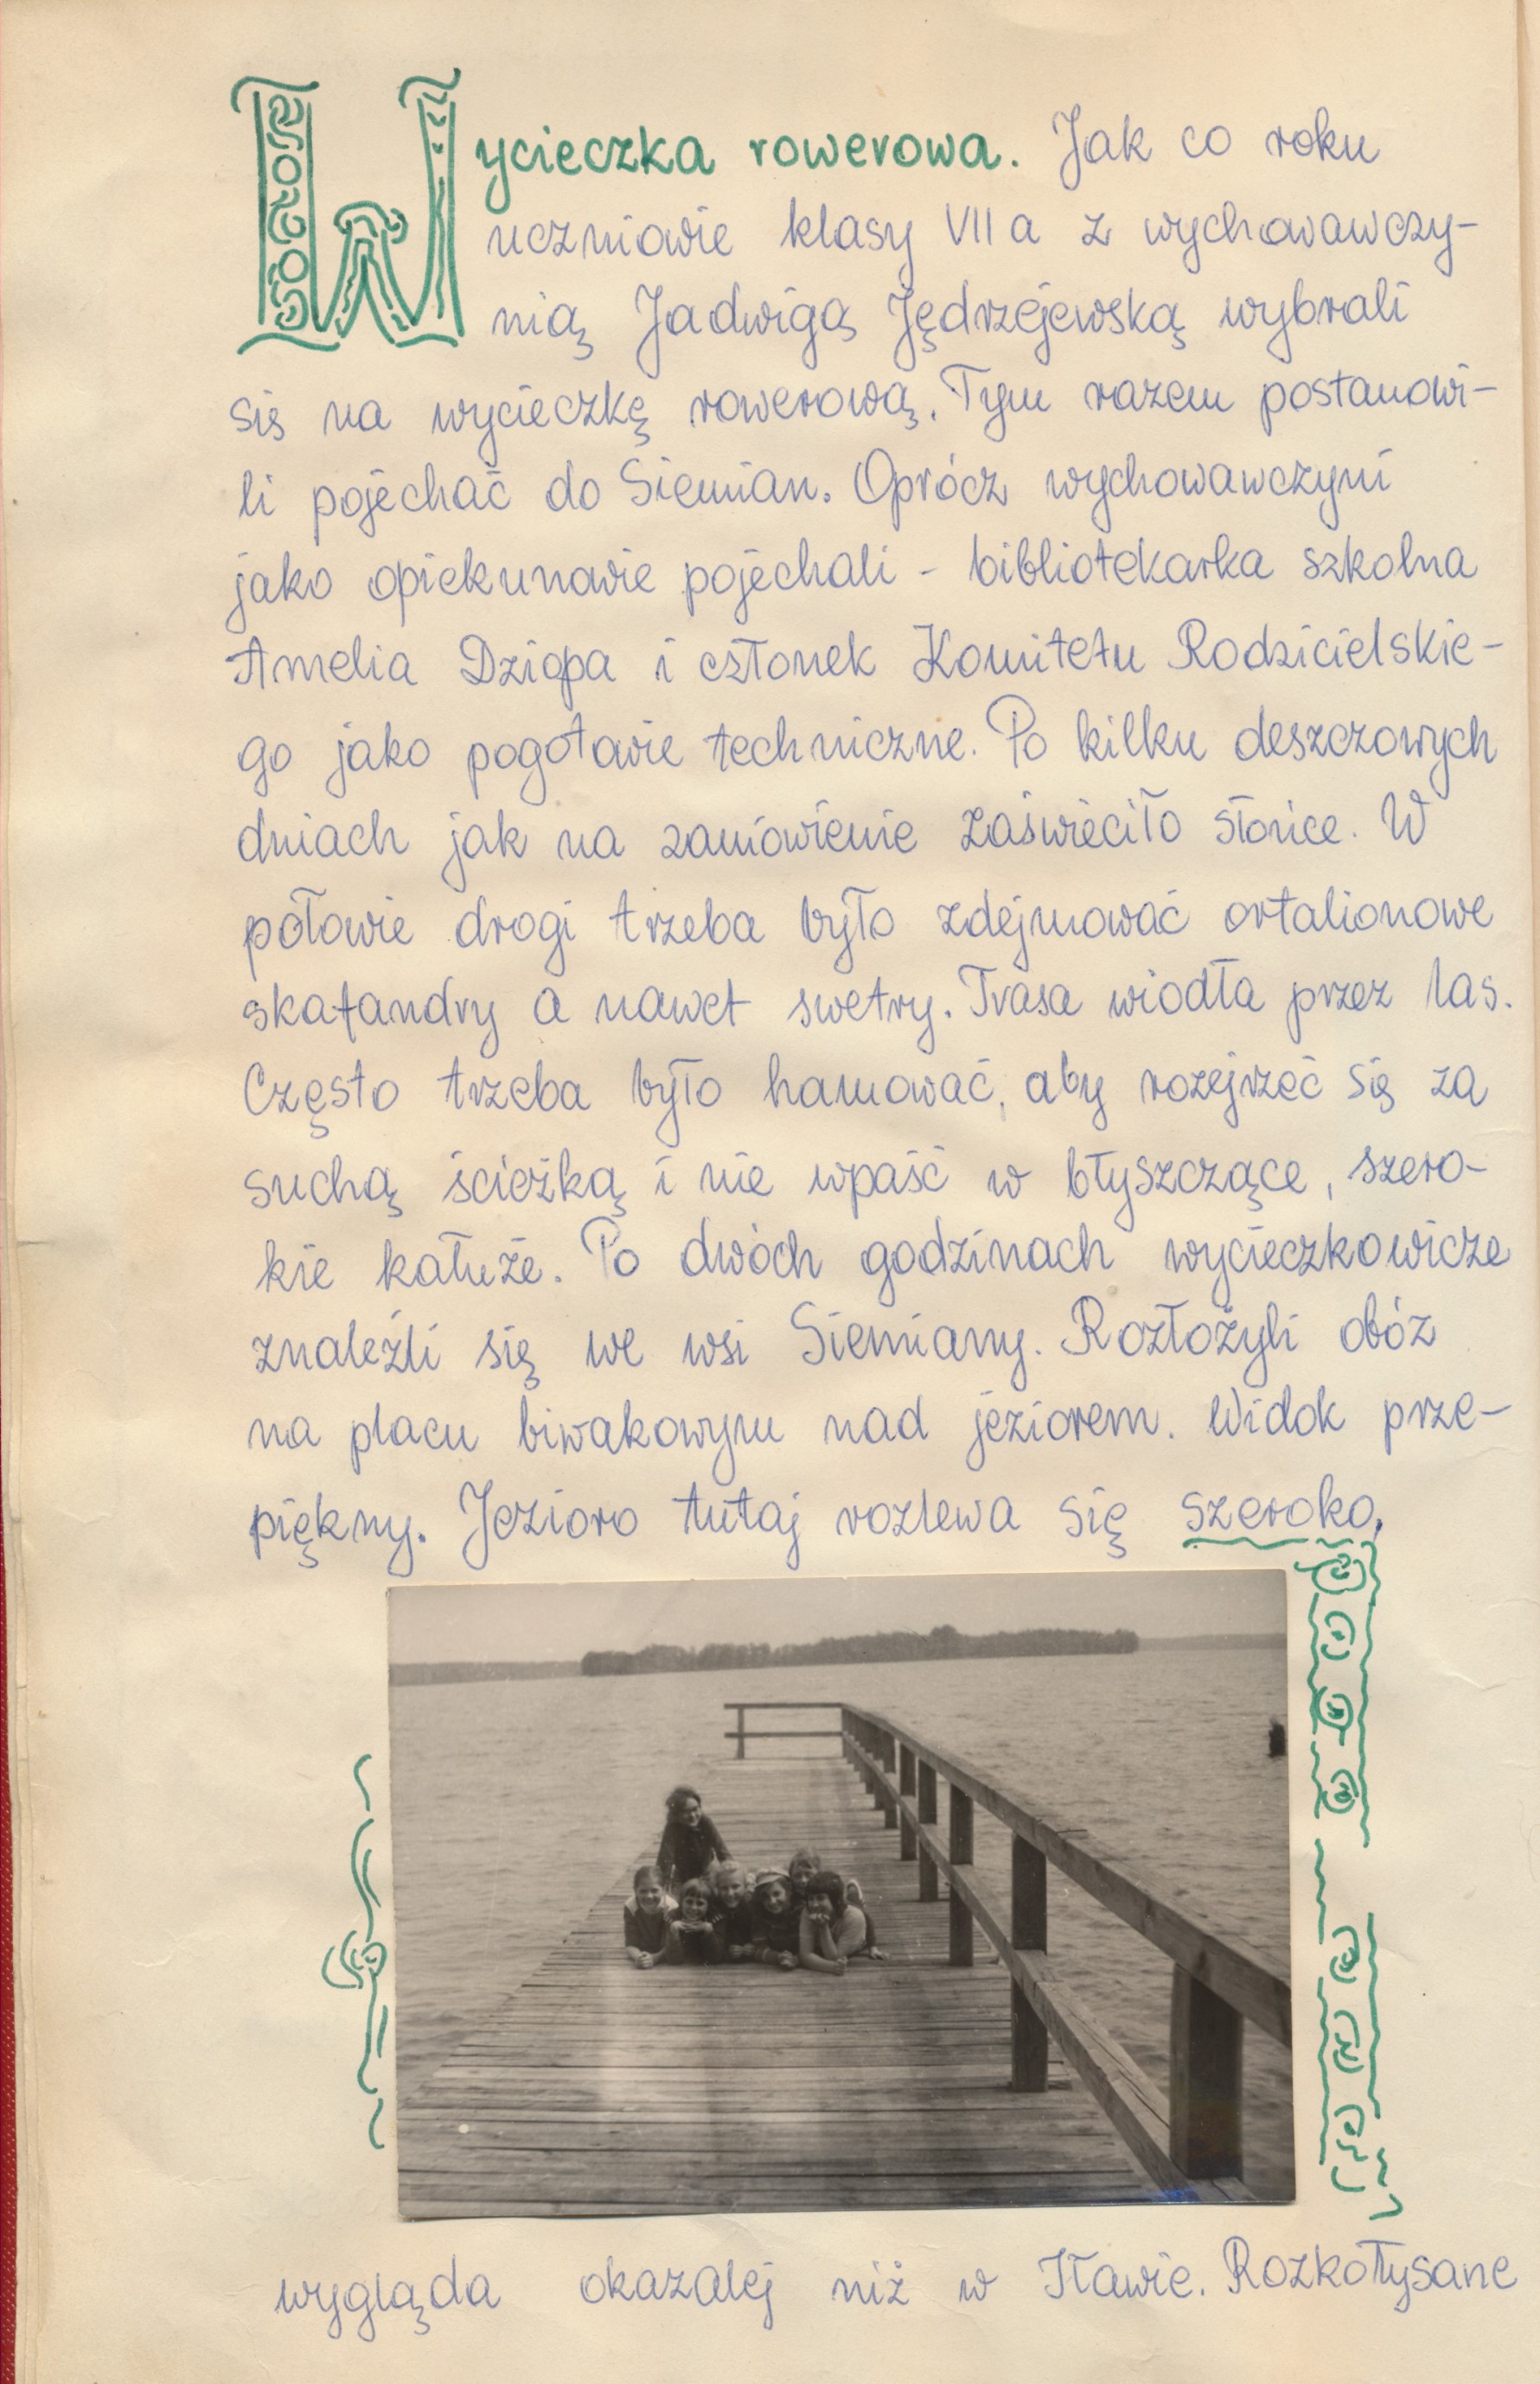 Wycieczka rowerowa. Jak co roku
uczniowie klasy VII a z wychowawczy-
nią Jadwigą Jędrzejewską wybrali
się na wycieczkę rowerową. Tym razem postanowi-
li pojechać do Siemian. Oprócz wychowawczyni
jako opiekunowie pojechali - bibliotekarka szkolna
Amelia Dziopa i członek Komitetu Rodzicielskie-
go jako pogotowie techniczne. Po kilku deszczowych
dniach jak na zamówienie zaświeciło słońce. W
połowie drogi trzeba było zdejmować ortalionowe
skafandry a nawet swetry. Trasa wiodła przez las.
Często trzeba było hamować, aby rozejrzeć się za
suchą ścieżką i nie wpaść w błyszczące, szero-
kie kałuże. Po dwóch godzinach wycieczkowicze
znaleźli się we wsi Siemiany. Rozłożyli obóz
na placu biwakowym nad jeziorem. Widok prze-
piękny. Jezioro tutaj rozlewa się szeroko,
wygląda okazalej niż w Iławie. Rozkołysane